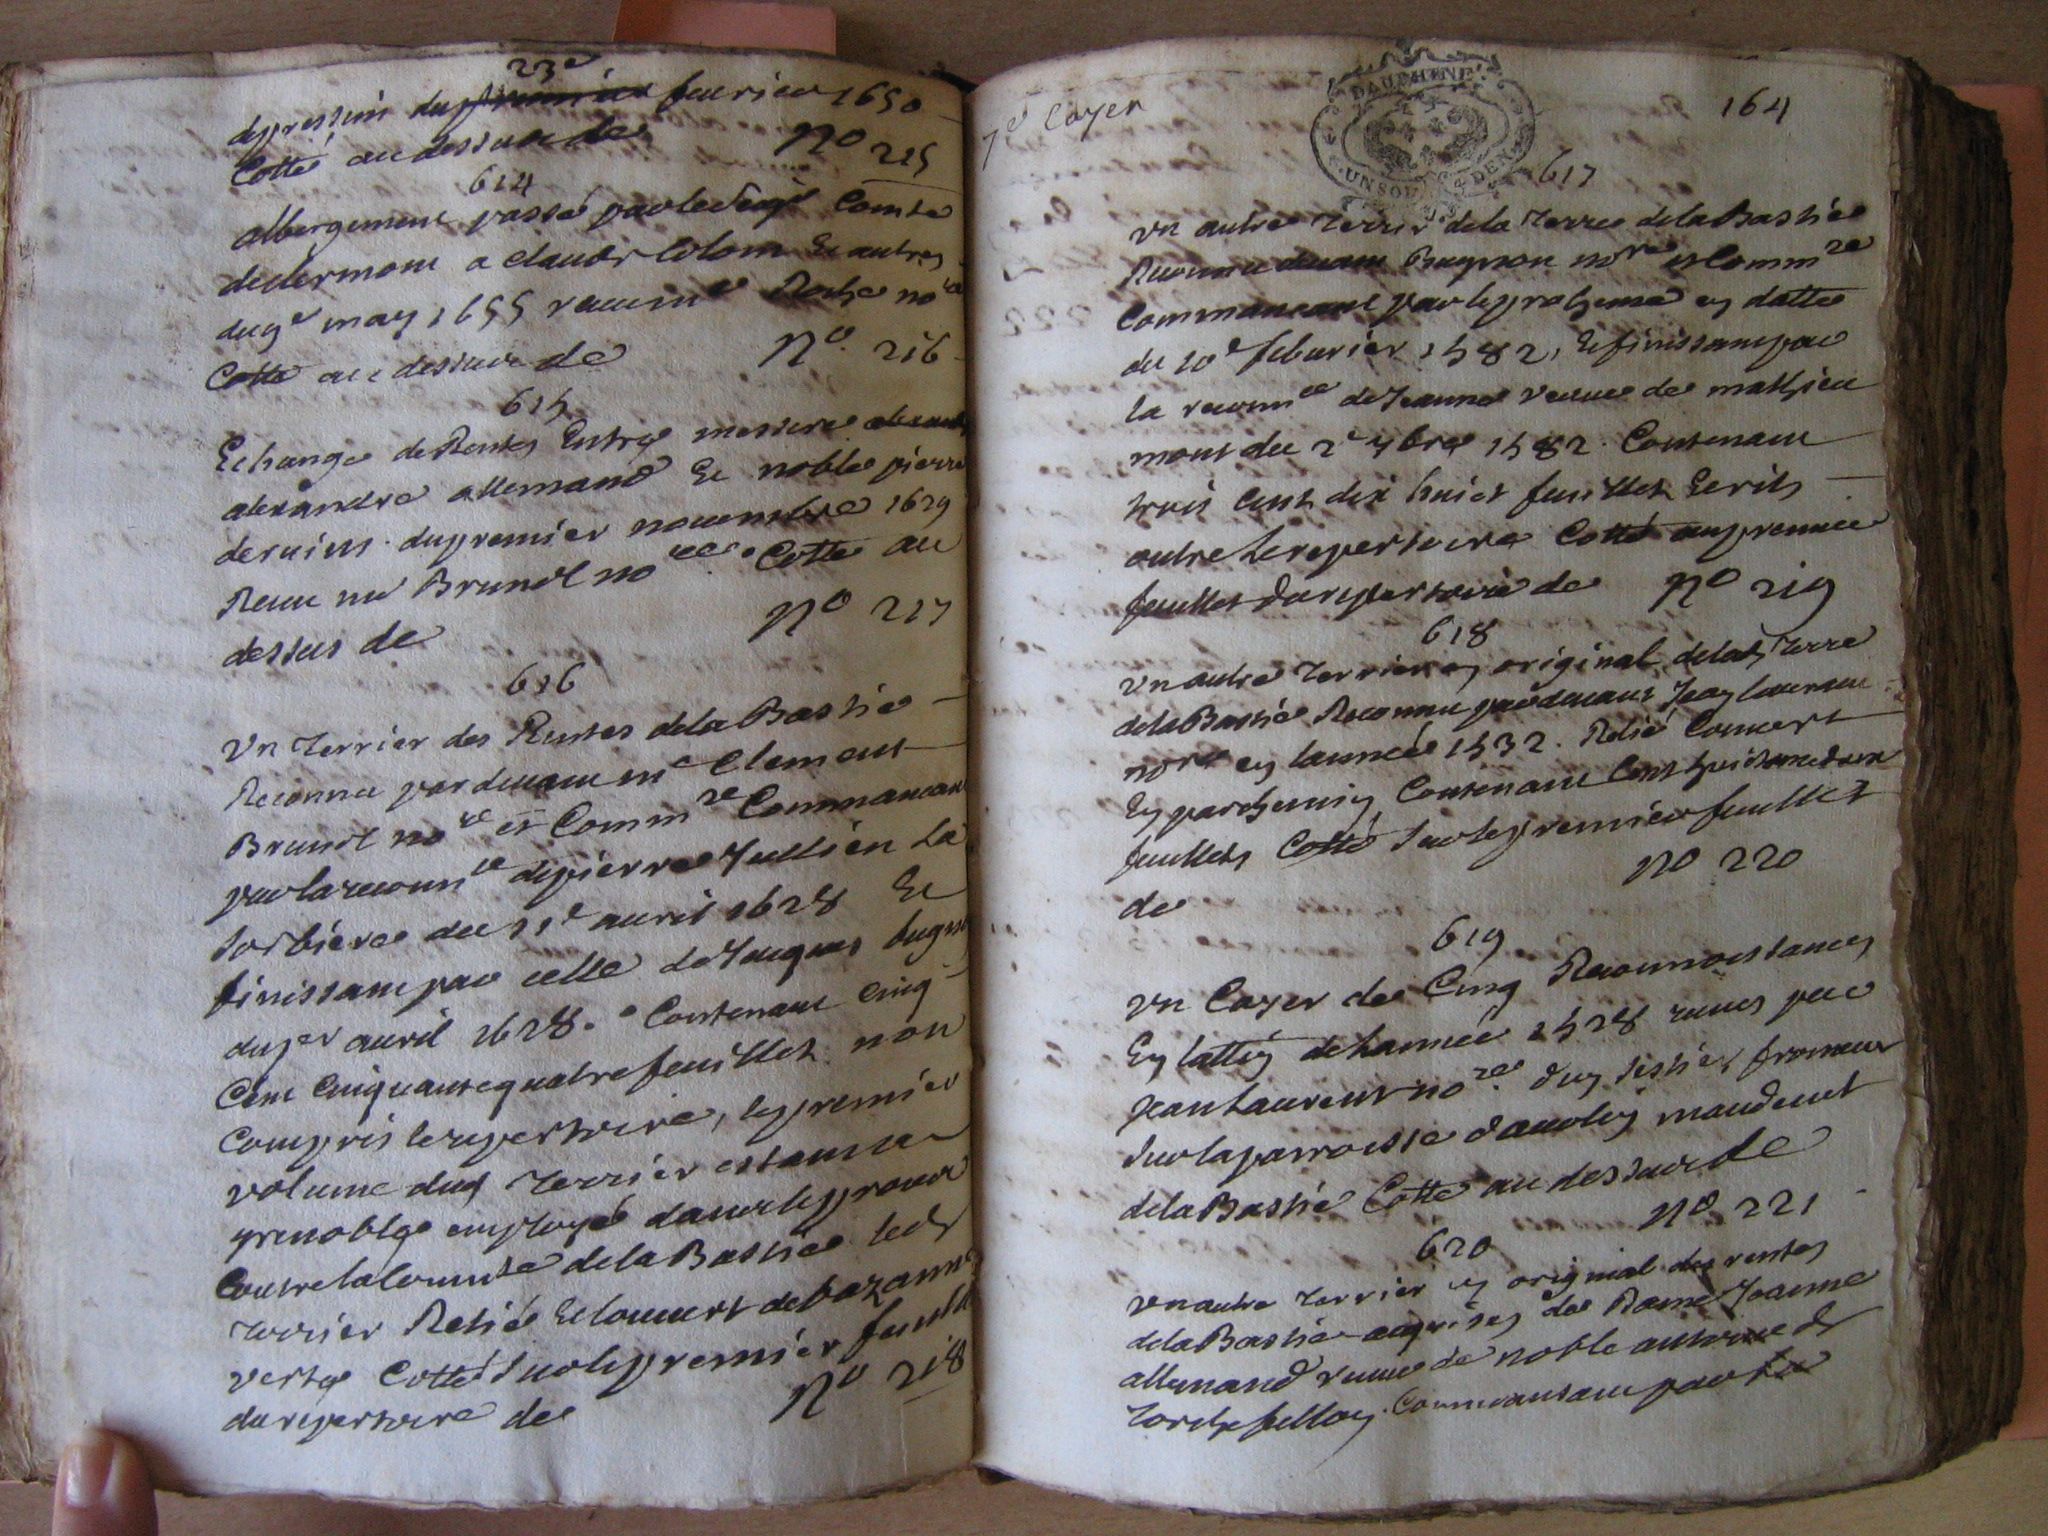 23e
dupremier feurier 1650
Cotté au dessus de No 215
614
albergement passé par Comte
declermont a claude Colom Et autres
du 9e may 1655 receu me Roche nore
Cotté au dessus de No. 216
615
Echange de Rentes Entre messire
alexandre allemand Et noble pierre
deruins dupremier nouembre 1629
Receu me Brunet nore. Cotté au
dessus de No 217
616
Un Terrier des Rentes dela Bastie
Reconnu par deuant me Clement
Brunet nore et Commre Commancant
par la reconnce depierre Jullien La
sorbiere du 11e auril 1628 Et
finissant par celle de Jacques
du per auril 1628. Contenant Cinq
Cent Cinquante quatre feuillets non
Compris le repertoire, le premier
volume dud Terrier estant a
grenoble employé dans le proces
Contre la Comtesse dela Bastie led
Terrier Relié Et couuert de bazanne
verte Cotté sur le premier feuillet
du repertoire de No 218
7e Cayer
DAUPHINE
164
617
Un autre Terrier dela Terre dela Bastie
Reconnu deuant nore et Commre
Commancant par le proheme en datte
du 10e feburier 1582, Et finissant par
la reconnce de Jeanne veuue de mathieu
mont du 2e 7bre 1582. Contenant
trois cent dix huict feuillets Ecrits
outre le repertoire Cotté au premier
feuillet du repertoire de No 219
618
Un autre Terrier en original delad Terre
dela Bastie Reconnu pardeuant Jean laurent
nore en lannée 1532. Relié Couuert
En parchemin Contenant Cent
feuillets Cotté sur le premier feuillet
de No 220
619
Un Cayer de Cinq Reconnoissances
En lattin de Lannée 1528 receues par
Jean Laurent nore. d'un sestier froment
sur la parroisse dauolin mandemt
dela Bastie Cotté au dessus de
No 221
620
Un autre Terrier en original des rentes
dela Bastie acquises de Dame Jeanne
allemand veuue de noble antoine de
Torchefellon. Commansant par la